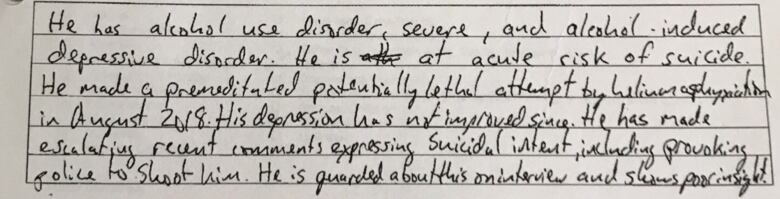 He has alcohol use disorder, severe, and alcohol-induced
depressive disorder. He is at acute risk of suicide.
He made a premeditated potentially lethal attempt by helium asphyxiation
in August 2018. His depression has not improved since. He has made
escalating recent comments expressing suicidal intent, including provoking
police to shoot him. He is guarded about this on interview and shows poor insight.